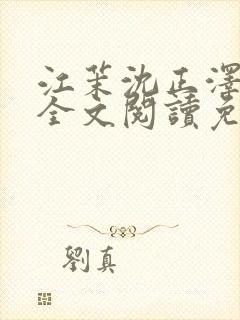 江茉沈正澤
全文閱讀免
劉真